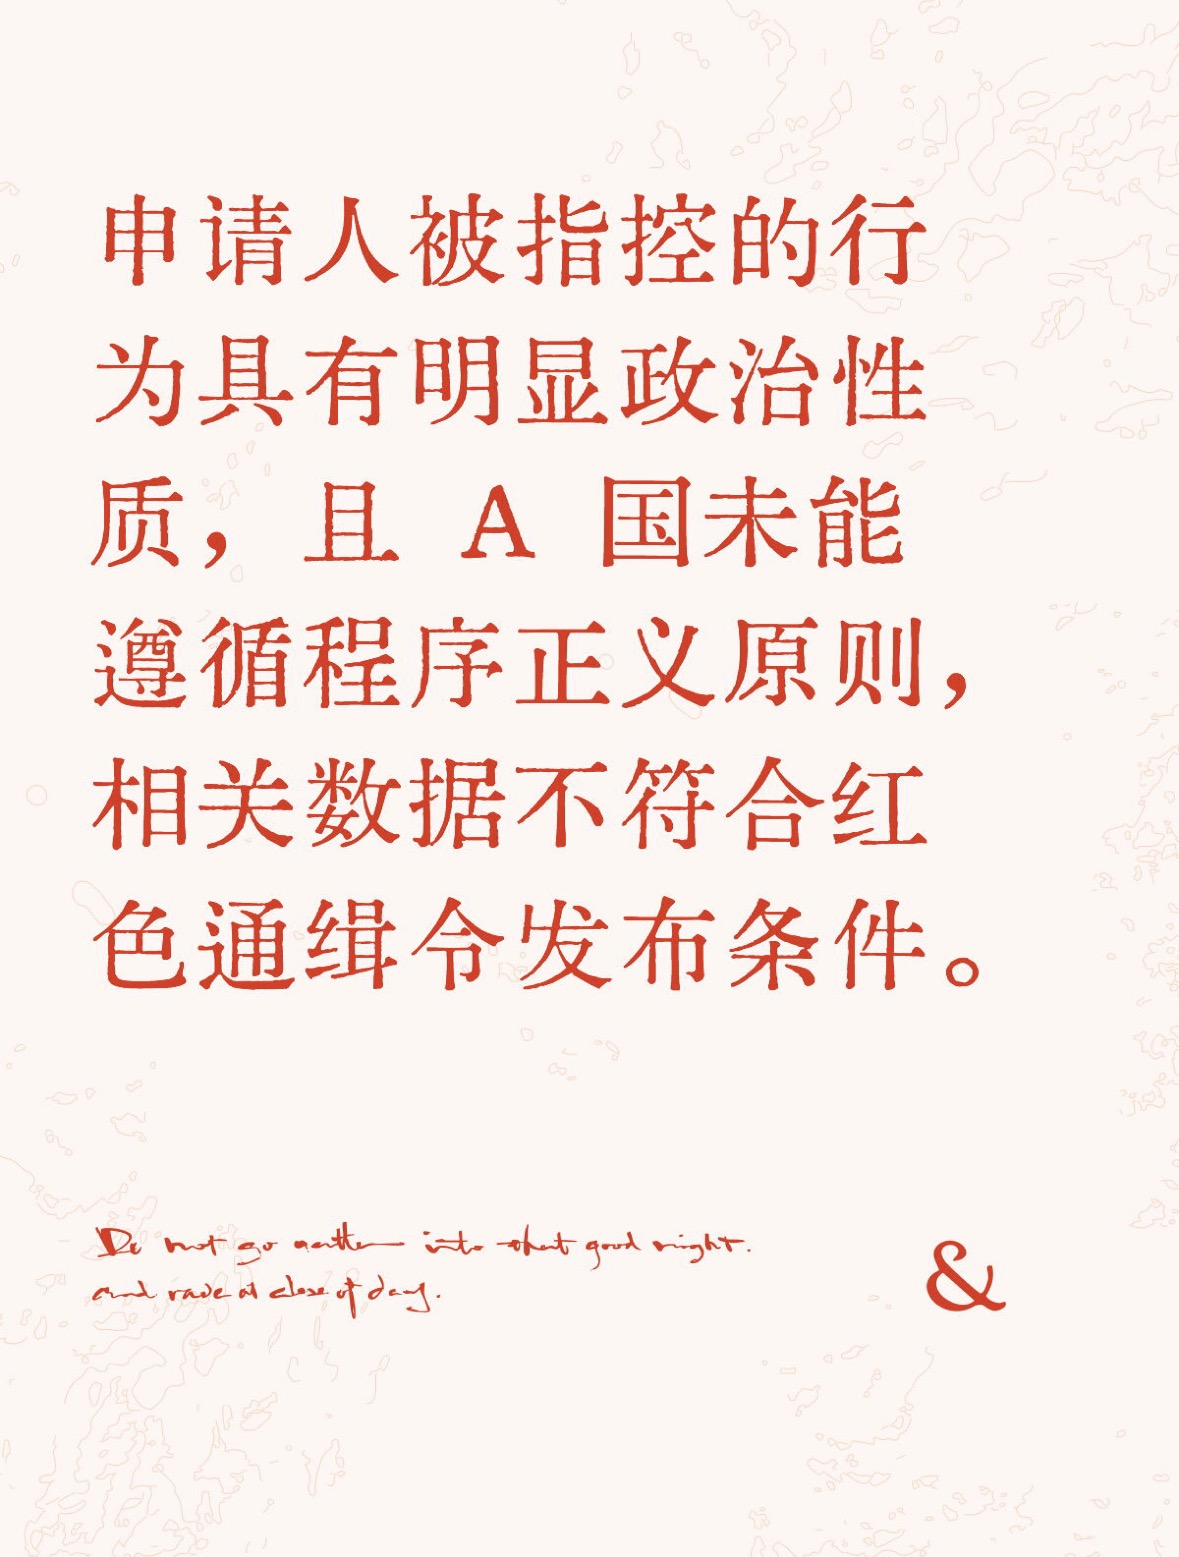 申请人被指控的行
为具有明显政治性
质，且 A 国未能
遵循程序正义原则，
相关数据不符合红
色通缉令发布条件。
Do not go gentle into that good night.
and rave at close of day.
&